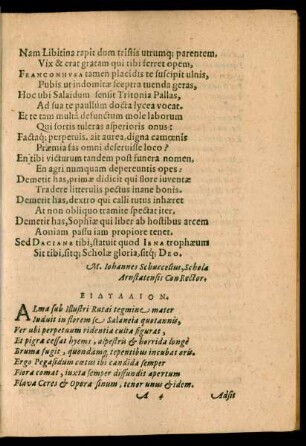 Nam Libitina rapit dom tristia utrumq; parentem.
Vix & erat gratam qui tibi ferret opem,
FRANCONHVSA tamen placidis te suscipit ulnis,
Pubis ut indomitæ sceptra tuenda geras,
Hoc ubi Salaidum sensit Tritonia Pallas,
Ad sua te paullùm docta lycea vocat.
Et te tam multâ defunctum mole laborum
Qui fortis tuleras asperioris onus:
Factaq; perpetuis, ait aurea, digna camœnis
Præmia fas omni deseruisse loco?
En tibi victurum tandem post funera nomen,
En agri nunquam depereuntis opes:
Demerit has, primæ didicit qui flore iuventæ
Tradere litterulis pectus inane bonis.
Demerit has, dextro qui calli tutus inhæret
At non obliquo tramite spectat iter.
Demerit has, Sophiæ qui liber ab hostibus arcem
Aoniam passu iam propiore tenet.
Sed DACIANE tibi, statuit quod IENA trophæum
Sit tibi, sitq; Scholæ gloria, sitq; DEO.
M. Iohannes Schurcelius, Schola
Arnstatensis ConRector.
ΕΙΔΥΛΛΙΟΝ.
ALma sub illustri Rutai tegmine mater
Induit in florem se Salaneia quotannis,
Ver ubi perpetuum ridentia culta figurat,
Et pigra cessat hyems, aspestris & horrida longè
Bruma fugit, quondamq; tepentibus incubat oris.
Ergo Pegasidum cœtus ibi candida semper
Flora comat, iuxta semper diffundit apertum
Flava Ceres & Opora sinum, tenor unus & idem.
A 4
Adsit